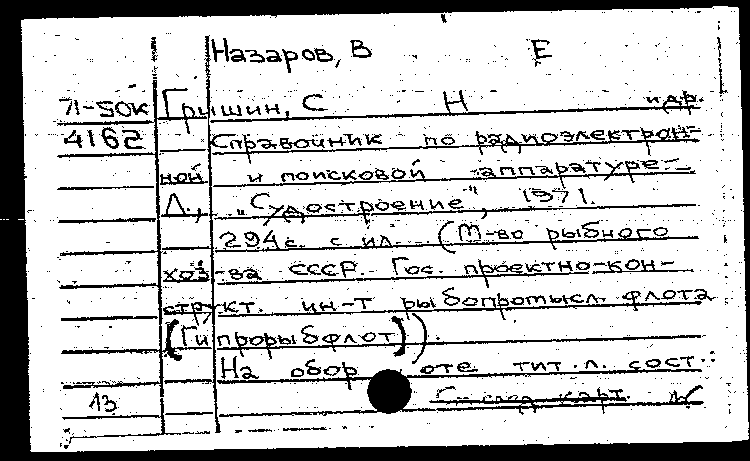 Назаров, В Е
71-50к Гришин, С Н и др.
4162 Справочник по радиоэлектрон-
ной и поисковой аппаратуре.-
Л., „Судостроение", 1971.
294 с. с ил. (М-во рыбного
хоз-ва СССР. Гос. проектно-кон-
структ. ин-т рыбопромысл. флота
(Гипрорыбфлот)).
На обор. оте. тит. л. сост.:
13 См. след. карт.